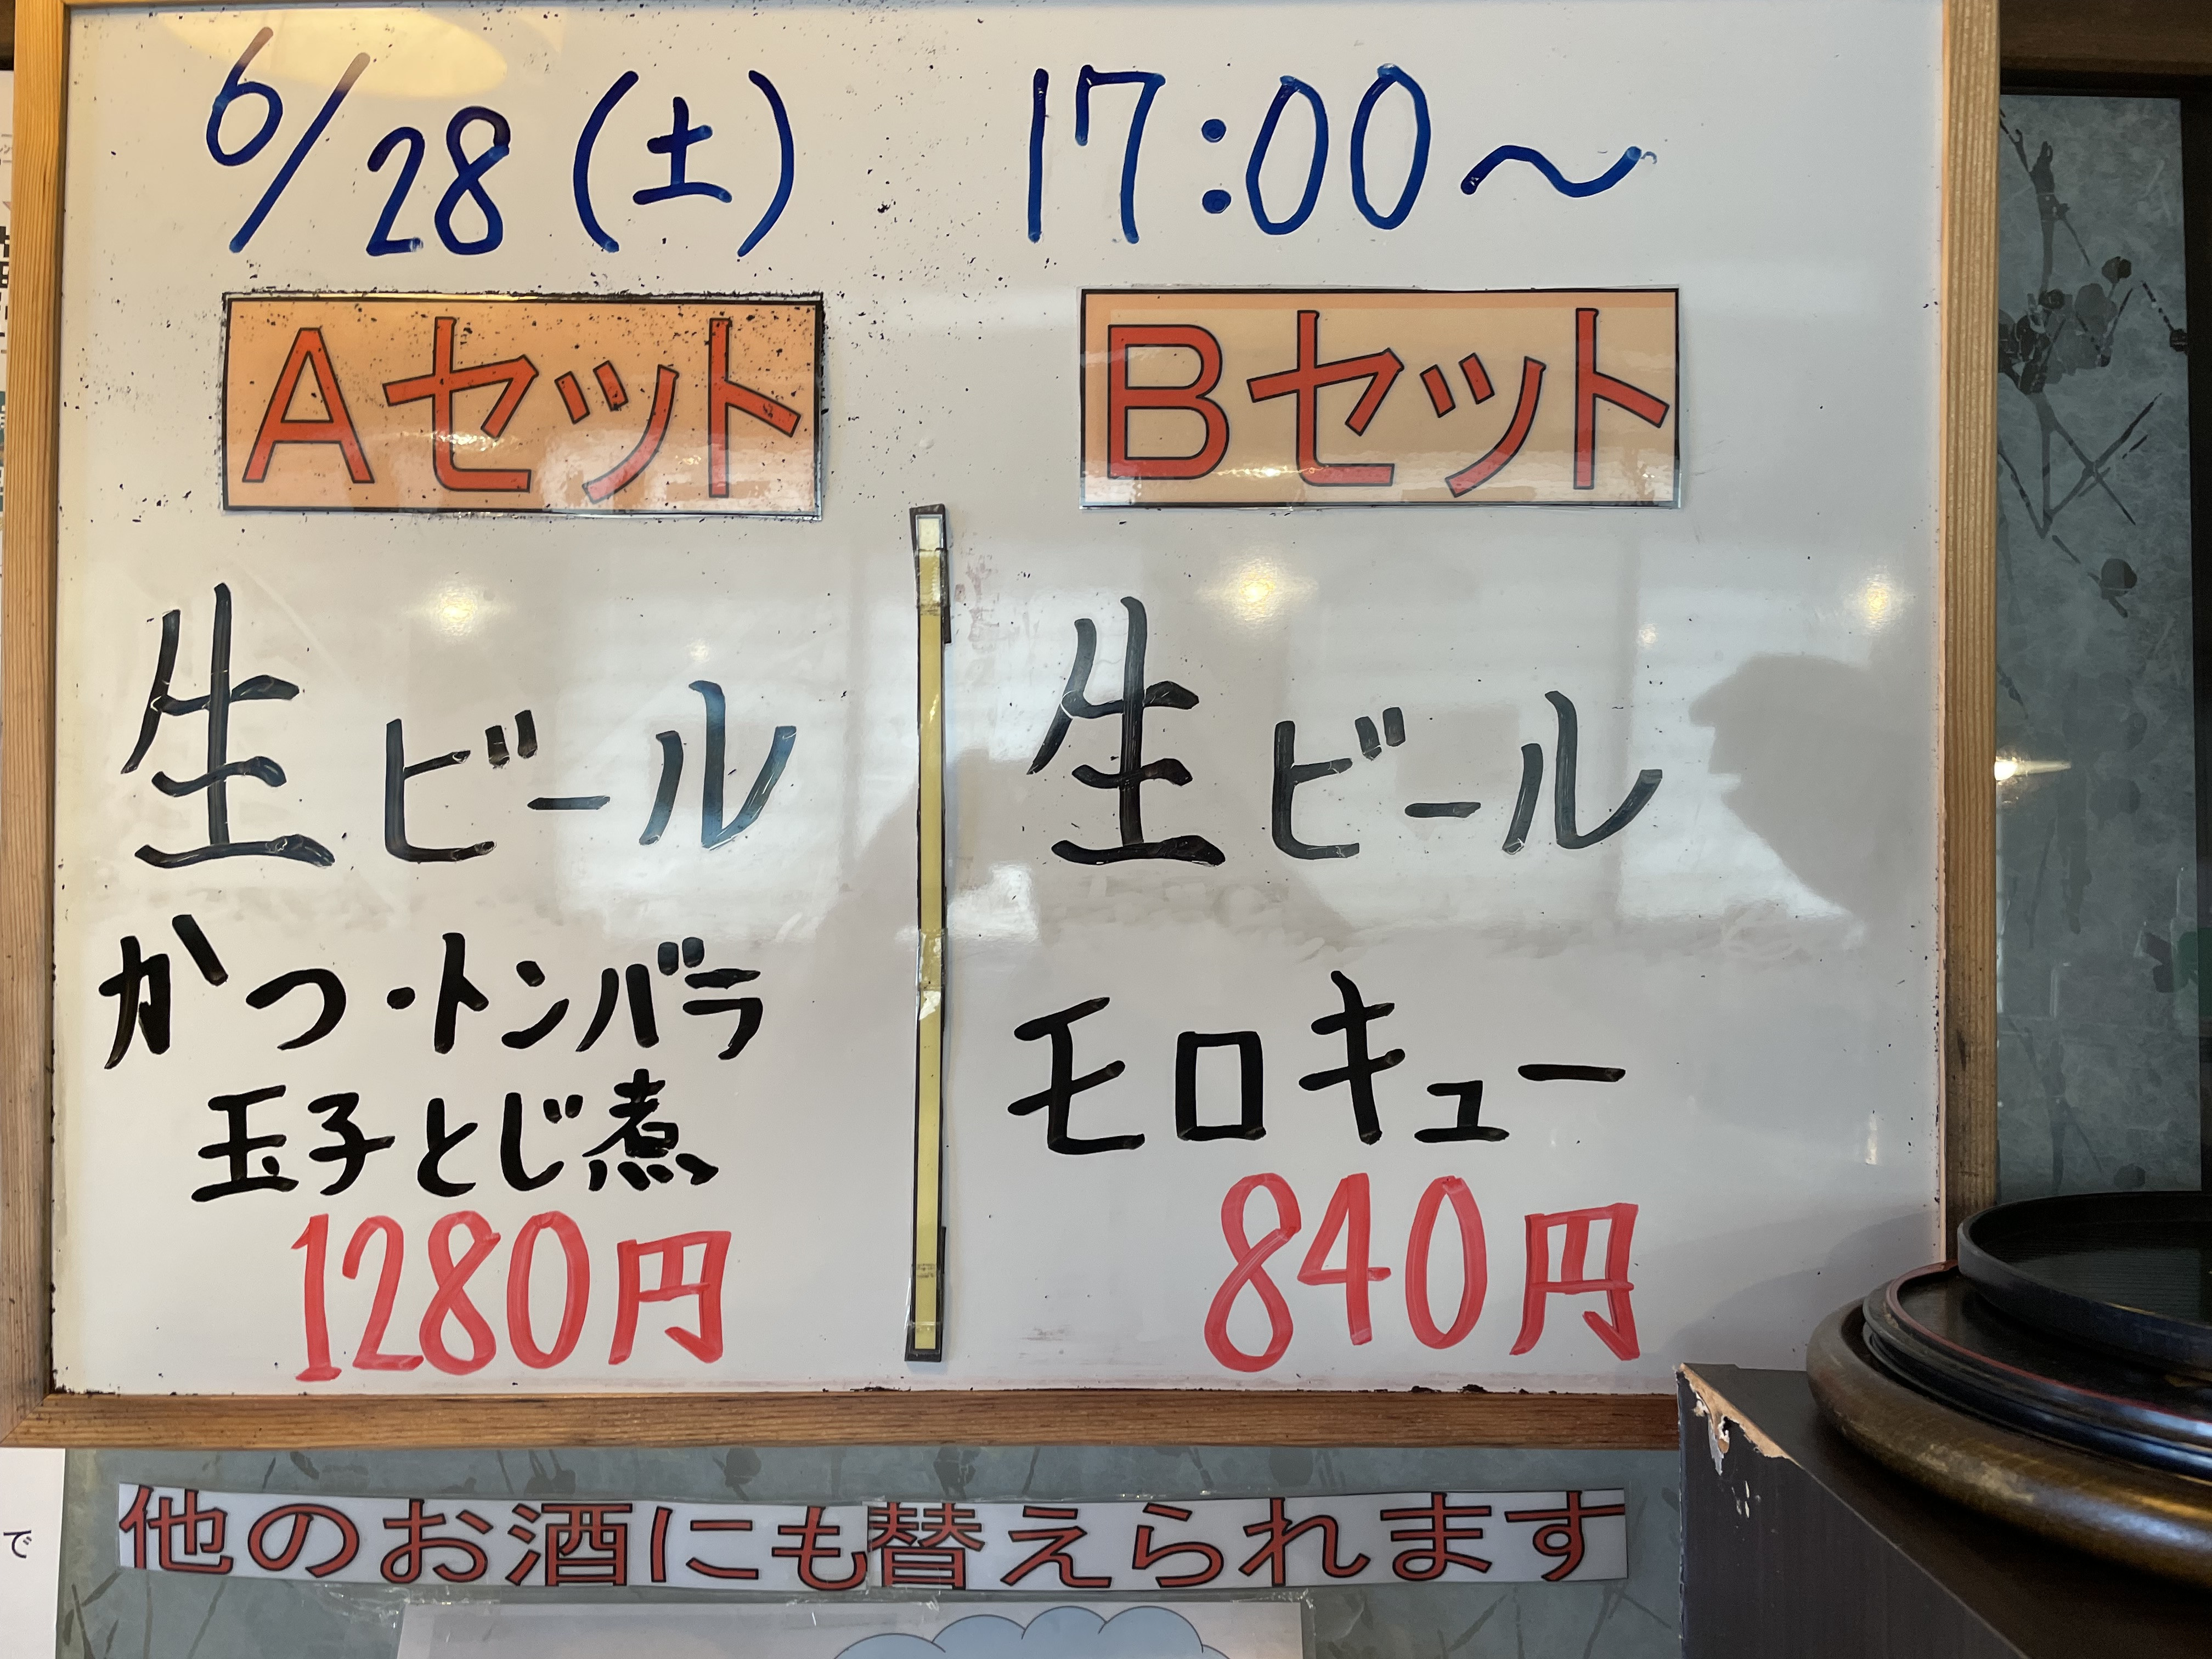 6/28(土) 17:00〜
Aセット
生ビール
かつ・トンバラ
玉子とじ煮
1280円
Bセット
生ビール
モロキュー
840円
他のお酒にも替えられます
で